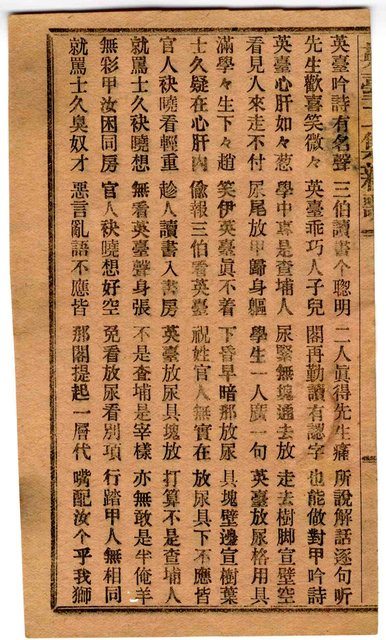 英臺吟詩有名聲 三伯讀書个聰明 二人眞得先生痛 所說解話逐句听
先生歡喜笑微々 英臺乖巧人子兒 閣再勤讀有認字 也能做對甲吟詩
英臺心肝如々惹 學中專是查埔人 尿緊無塊通去放 走去樹脚宣壁空
看見人來走不付 尿尾放甲歸身軀 學生一人廣一句 英臺放尿格用具
滿學々生下々趙 笑伊英臺眞不着 下昏早暗那放尿 具塊壁邊宣樹葉
士久疑在心肝內 偸報三伯看英臺 祝姓官人無實在 放尿具下不應皆
官人袂曉看輕重 趂人讀書入書房 英臺放尿具塊放 打算不是查埔人
就罵士久袂曉想 無看英臺聲身張 不是查埔是宰樣 亦無敢是半俺羊
無彩甲汝困同房 官人袂曉想好空 免看放尿看別項 行踏甲人無相同
就罵士久臭奴才 惡言亂語不應皆 那閣提起一層代 嘴配汝个乎我獅